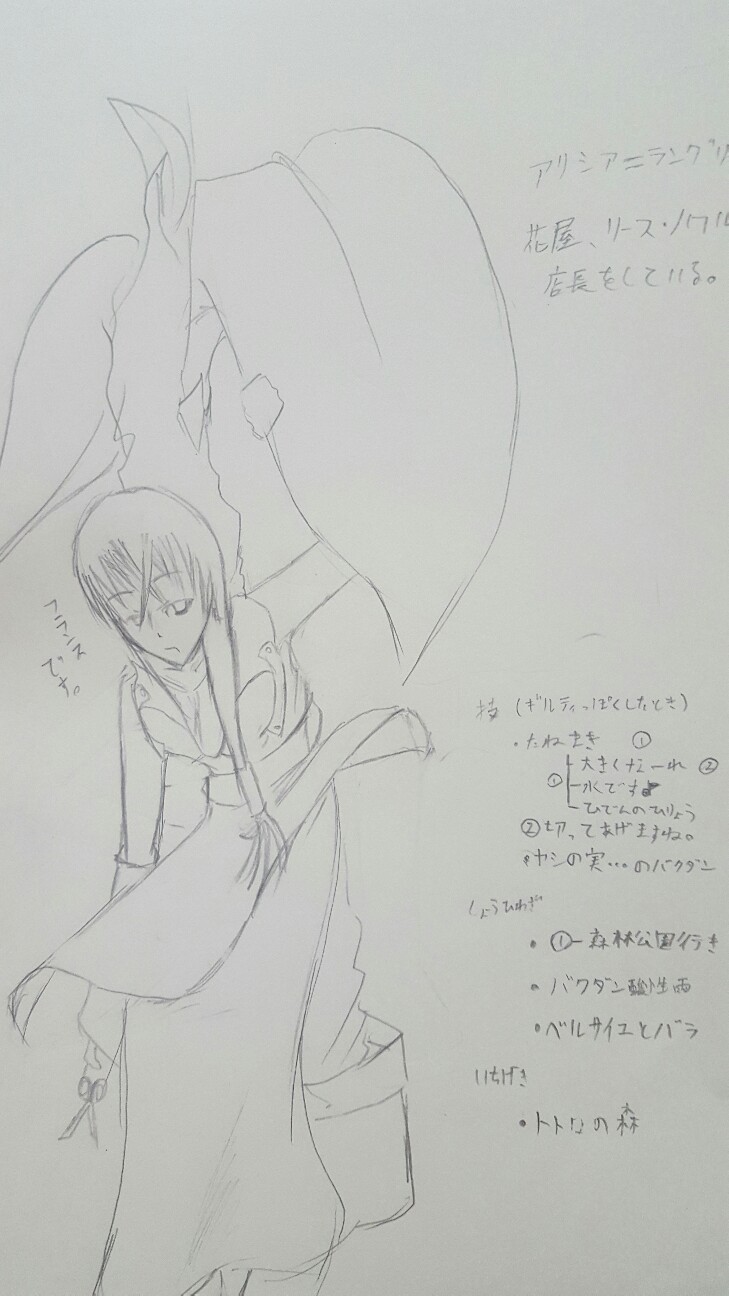 アリシア＝ラングリ
花屋、リース・ノワル
店長をしている。
フランス
です。
技（ギルティっぽくしたとき）
・たねまき ①
①大きくなーれ ②
水です
ひでんのひりょう
②切ってあげますね。
ヤシの実…のバクダン
しょうひわざ
・①-森林公園行き
・バクダン酸性雨
・ベルサイユとバラ
いちげき
・トトなの森